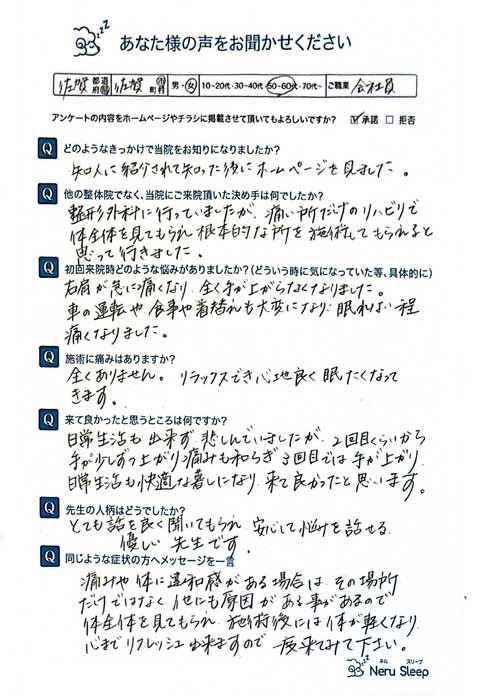 あなた様の声をお聞かせください
佐賀 都道府県 佐賀 市町村 男・女 10~20代・30~40代・50~60代・70代~ ご職業 会社員
アンケートの内容をホームページやチラシに掲載させて頂いてもよろしいですか? ☑承諾 □拒否
Q どのようなきっかけで当院をお知りになりましたか?
知人に紹介されて知った後にホームページを見ました。
Q 他の整体院でなく、当院にご来院頂いた決め手は何でしたか?
整形外科に行っていましたが、痛い所だけのリハビリで
体全体を見てもられ根本的な所を施術してもられると
思って行きました。
Q 初回来院時どのような悩みがありましたか?(どういう時に気になっていた等、具体的に)
右肩が急に痛くなり、全く手が上がらなくなりました。
車の運転や食事や着替れも大変になり、眠れない程
痛くなりました。
Q 施術に痛みはありますか?
全くありません。リラックスでき心地良く眠たくなって
きます。
Q 来て良かったと思うところは何ですか?
日常生活も出来ず、悲しんでいましたが、2回目くらいから
手が少しずつ上がり痛みも和らぎ3回目では手が上がり、
日常生活も快適な暮しになり、来て良かったと思います。
Q 先生の人柄はどうでしたか?
とても話を良く聞いてもられ、安心して悩みを話せる
優しい先生です。
Q 同じような症状の方へメッセージを一言
痛みや体に違和感がある場合は、その場所
だけではなく、他にも原因がある事があるので
体全体を見てもられ、施術後には体が軽くなり、
心までリフレッシュ出来ますので一度来てみて下さい。
ネル スリープ
Neru Sleep